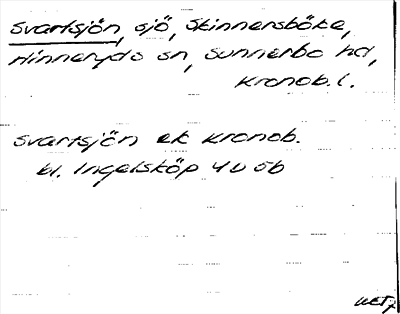 Svartsjön, sjö, Skinnersböke,
Hinneryds sn, Sunnerbo hd,
Kronob. l.
Svartsjön ek Kronob.
bl. Ingelsköp 4 U 5b